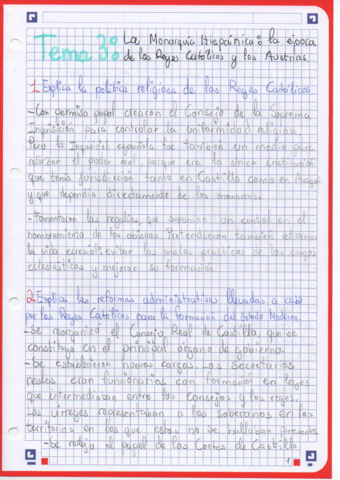 Tema 3: La Monarquía Hispánica: la época
de los Reyes Católicos y los Austrias.
1. Explica la política religiosa de los Reyes Católicos.
-Con permiso papal crearon el Consejo de la Suprema
Inquisición para controlar la uniformidad religiosa.
Pero la Inquisición española fue también un medio para
el poder real, porque era la única institución
que tenía jurisdicción tanto en Castilla como en Aragón
y que dependía directamente de los monarcas.
-Fomentaron las regalías que suponían un control en el
nombramiento de los obispos. Pretendieron también reformar
la vida eclesial: evitar las malas prácticas de los cargos
eclesiásticos y mejorar su formación.
2. Explica las reformas administrativas llevadas a cabo
por los Reyes Católicos para la formación del Estado Moderno.
-Se reorganizó el Consejo Real de Castilla, que se
constituyó en el principal órgano de gobierno.
-Se establecieron nuevos cargos. Los Secretarios
reales eran funcionarios con formación en leyes
que intermediaban entre los consejos y los reyes.
Los virreyes representaban a los soberanos en los
territorios en los que estos no se hallaban presentes
-Se redujo el papel de las Cortes de Castilla
1